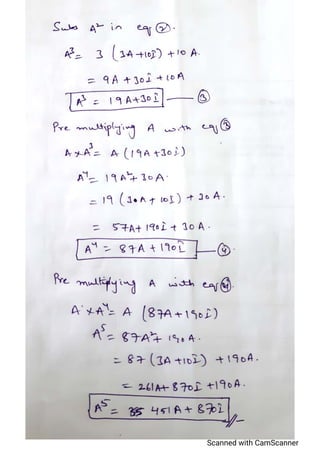 Subs A² in eq ②.
A³ = 3 (3A+10I) + 10 A.
= 9A + 30I + 10A
A³ = 19A+30I — ③
Pre multiplying A with eq ③
A×A³ = A (19A+30I)
A⁴ = 19A²+30A.
= 19 (3A + 10I) + 30A.
= 57A+ 190I + 30A.
A⁴ = 87A + 190I — ④.
Pre multiplying A with eq ④.
A×A⁴ = A (87A+190I)
A⁵ = 87A²+ 190A.
= 87 (3A+10I) + 190A.
= 261A+ 870I +190A.
A⁵ = 451A + 870I
Scanned with CamScanner